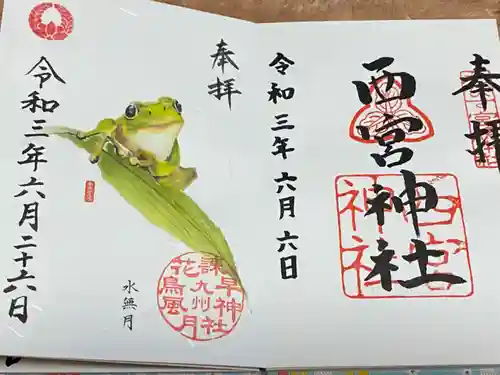 奉拝
西宮神社
西宮神社
令和三年六月六日
奉拝
諫早神社
九州
花鳥風月
水無月
令和三年六月二十六日